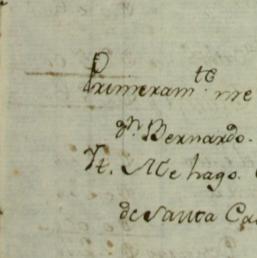 Primeram.te me
Dn. Bernardo.
Yt. Me hago.
de Santa Ca